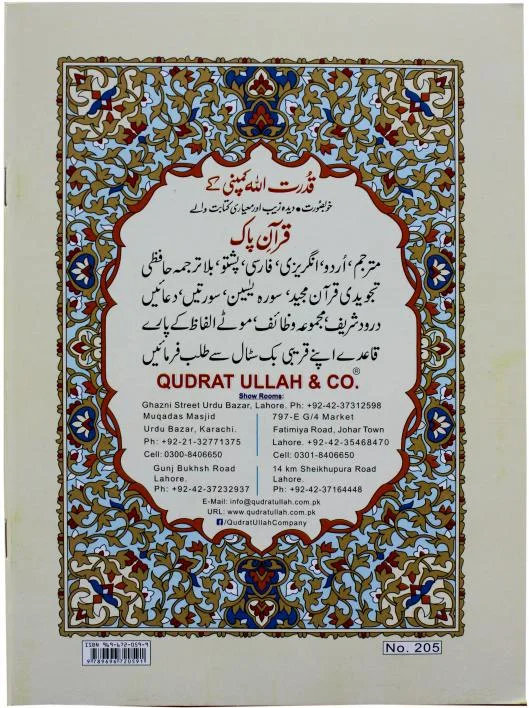 قُدرت اللہ کمپنی کے
خوبصورت • دیدہ زیب اور معیاری کتابت والے
قرآنِ پاک
مترجم، اُردو، انگریزی، فارسی، پشتو، بلا ترجمہ حافظی
تجویدی قرآن مجید، سورہ یٰسین، سورتیں، دعائیں
درود شریف، مجموعہ وظائف، موٹے الفاظ کے پارے
قاعدے اپنے قریبی بک سٹال سے طلب فرمائیں
QUDRAT ULLAH & CO.®
Show Rooms:
Ghazni Street Urdu Bazar, Lahore. Ph: +92-42-37312598
Muqadas Masjid
Urdu Bazar, Karachi.
Ph: +92-21-32771375
Cell: 0300-8406650
797-E G/4 Market
Fatimiya Road, Johar Town
Lahore. +92-42-35468470
Cell: 0301-8406650
Gunj Bukhsh Road
Lahore.
Ph: +92-42-37232937
14 km Sheikhupura Road
Lahore.
Ph: +92-42-37164448
E-Mail: info@qudratullah.com.pk
URL: www.qudratullah.com.pk
f/QudratUllahCompany
ISBN 969-672-059-9
9 789696 720591
No. 205